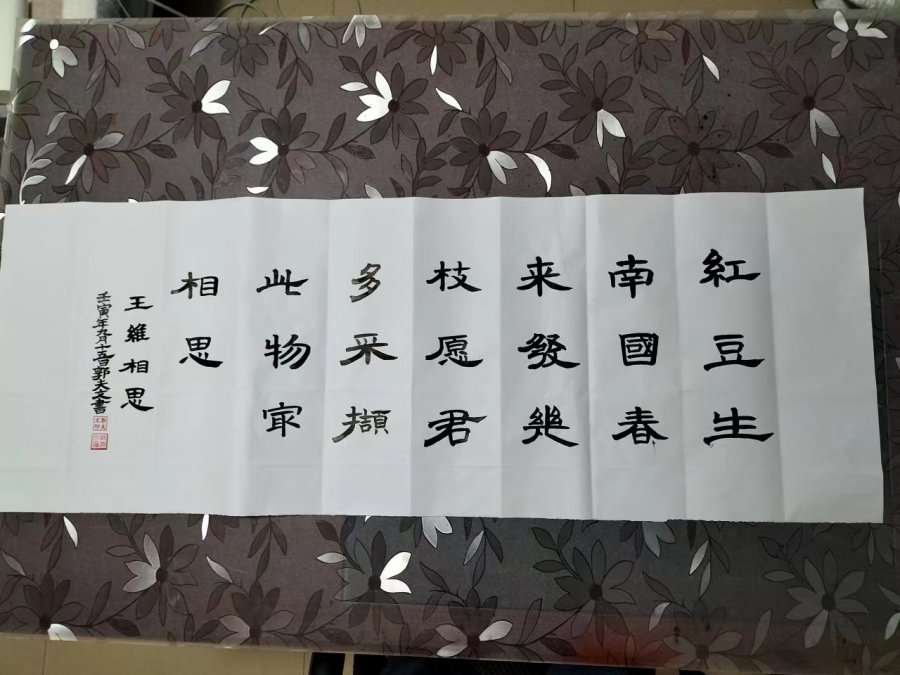 紅豆生
南國春
来發幾
枝愿君
多采擷
此物㝡
相思
王維相思
壬寅年九月十五日郭夫文書